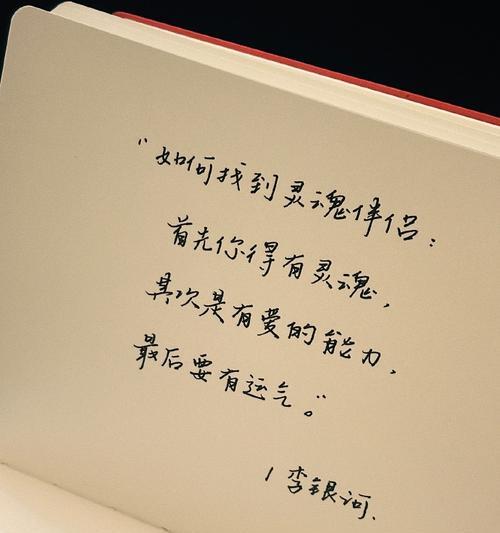 “如何找到灵魂伴侣：
首先你得有灵魂，
其次是有爱的能力，
最后要有运气。”
/ 李银河.